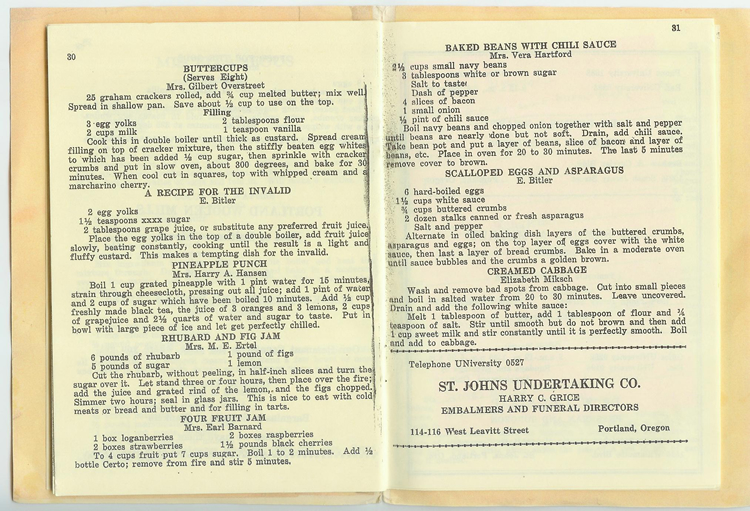 30
BUTTERCUPS
(Serves Eight)
Mrs. Gilbert Overstreet
25 graham crackers rolled, add ¾ cup melted butter; mix well.
Spread in shallow pan. Save about ½ cup to use on the top.
Filling
3 egg yolks 2 tablespoons flour
2 cups milk 1 teaspoon vanilla
Cook this in double boiler until thick as custard. Spread cream
filling on top of cracker mixture, then the stiffly beaten egg whites
to which has been added ½ cup sugar, then sprinkle with cracker
crumbs and put in slow oven, about 300 degrees, and bake for 30
minutes. When cool cut in squares, top with whipped cream and a
marcharino cherry.
A RECIPE FOR THE INVALID
E. Bitler
2 egg yolks
1½ teaspoons xxxx sugar
2 tablespoons grape juice, or substitute any preferred fruit juice.
Place the egg yolks in the top of a double boiler, add fruit juice
slowly, beating constantly, cooking until the result is a light and
fluffy custard. This makes a tempting dish for the invalid.
PINEAPPLE PUNCH
Mrs. Harry A. Hansen
Boil 1 cup grated pineapple with 1 pint water for 15 minutes,
strain through cheesecloth, pressing out all juice; add 1 pint of water
and 2 cups of sugar which have been boiled 10 minutes. Add ½ cup
freshly made black tea, the juice of 3 oranges and 3 lemons, 2 cups
of grapejuice and 2½ quarts of water and sugar to taste. Put in
bowl with large piece of ice and let get perfectly chilled.
RHUBARB AND FIG JAM
Mrs. M. E. Ertel
6 pounds of rhubarb 1 pound of figs
5 pounds of sugar 1 lemon
Cut the rhubarb, without peeling, in half-inch slices and turn the
sugar over it. Let stand three or four hours, then place over the fire;
add the juice and grated rind of the lemon, and the figs chopped.
Simmer two hours; seal in glass jars. This is nice to eat with cold
meats or bread and butter and for filling in tarts.
FOUR FRUIT JAM
Mrs. Earl Barnard
1 box loganberries 2 boxes raspberries
2 boxes strawberries 1½ pounds black cherries
To 4 cups fruit put 7 cups sugar. Boil 1 to 2 minutes. Add ½
bottle Certo; remove from fire and stir 5 minutes.
31
BAKED BEANS WITH CHILI SAUCE
Mrs. Vera Hartford
2½ cups small navy beans
3 tablespoons white or brown sugar
Salt to taste
Dash of pepper
4 slices of bacon
1 small onion
½ pint of chili sauce
Boil navy beans and chopped onion together with salt and pepper
until beans are nearly done but not soft. Drain, add chili sauce.
Take bean pot and put a layer of beans, slice of bacon and layer of
beans, etc. Place in oven for 20 to 30 minutes. The last 5 minutes
remove cover to brown.
SCALLOPED EGGS AND ASPARAGUS
E. Bitler
6 hard-boiled eggs
1½ cups white sauce
¾ cups buttered crumbs
2 dozen stalks canned or fresh asparagus
Salt and pepper
Alternate in oiled baking dish layers of the buttered crumbs,
asparagus and eggs; on the top layer of eggs cover with the white
sauce, then last a layer of bread crumbs. Bake in a moderate oven
until sauce bubbles and the crumbs a golden brown.
CREAMED CABBAGE
Elizabeth Miksch
Wash and remove bad spots from cabbage. Cut into small pieces
and boil in salted water from 20 to 30 minutes. Leave uncovered.
Drain and add the following white sauce:
Melt 1 tablespoon of butter, add 1 tablespoon of flour and ¼
teaspoon of salt. Stir until smooth but do not brown and then add
1 cup sweet milk and stir constantly until it is perfectly smooth. Boil
and add to cabbage.
Telephone UNiversity 0527
ST. JOHNS UNDERTAKING CO.
HARRY C. GRICE
EMBALMERS AND FUNERAL DIRECTORS
114-116 West Leavitt Street Portland, Oregon